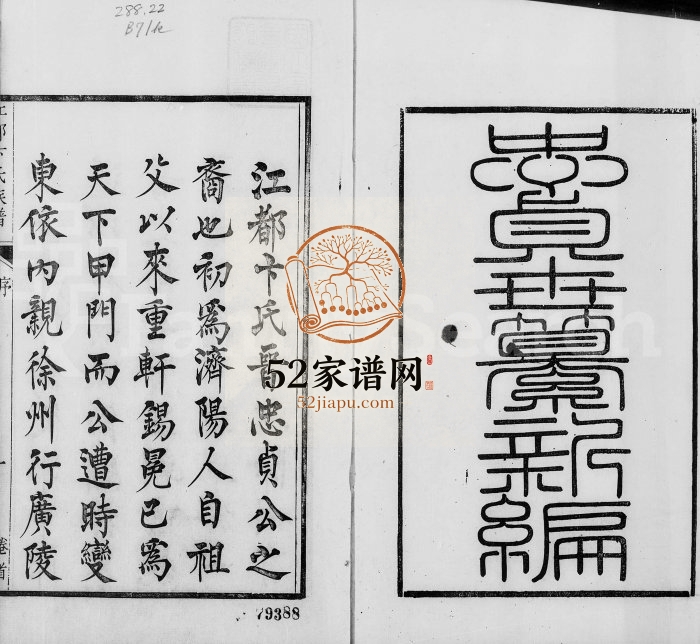 288.22
B71k
忠貞世纂新編
江都卞氏晉忠貞公之
裔也初爲濟陽人自祖
父以來重軒錫冕已爲
天下甲門而公遭時變
東依內親徐州行廣陵
江都卞氏族譜
序
一
卷首
52家谱网
52jiapu.com
79388